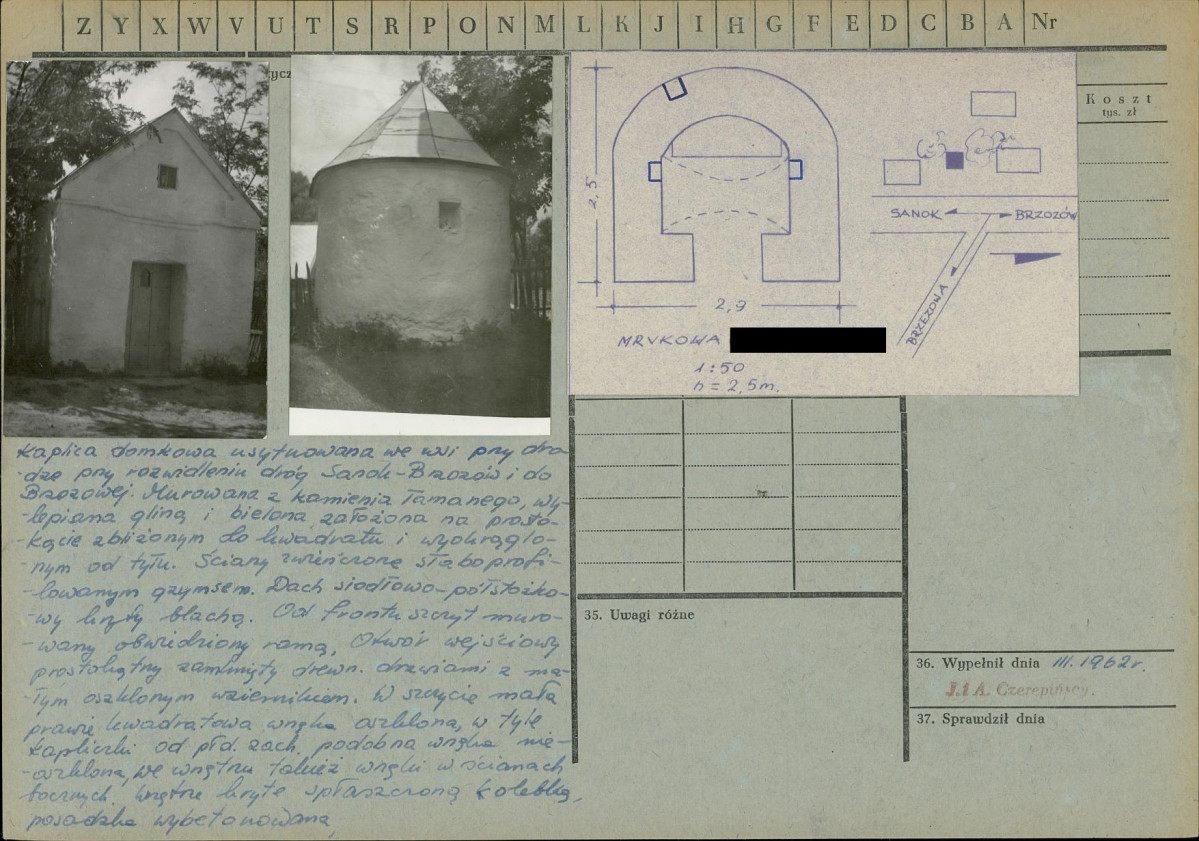 Z Y X W V U T S R P O N M L K J I H G F E D C B A Nr
ycz
Koszt
tys. zł
2,5
2,9
SANOK
BRZOZÓW
BRZEZOWA
MRUKOWA
1:50
h = 2,5m.
Kaplica domkowa usytuowana we wsi przy dro-
-dze przy rozwidleniu dróg Sanok-Brzozów i do
Brzozowej. Murowana z kamienia łamanego, wy-
-lepiana gliną i bielona, założona na prosto-
-kącie zbliżonym do kwadratu i wyokrąglo-
-nym od tyłu. Ściany zwieńczone słaboprofi-
-lowanym gzymsem. Dach siodłowo-półstożko-
-wy kryty blachą. Od frontu szczyt muro-
-wany obwiedziony ramą, Otwór wejściowy
prostokątny zamknięty drewn. drzwiami z ma-
-łym oszklonym wziernikiem. W szczycie mała
prawie kwadratowa wnęka oszklona, w tyle
kapliczki od płd. zach. podobna wnęka nie-
-oszklona, we wnętrzu takież wnęki w ścianach
bocznych. Wnętrze kryte spłaszczoną kolebką,
posadzka wybetonowana,
35. Uwagi różne
36. Wypełnił dnia III. 1962 r.
J. i A. Czerepińscy.
37. Sprawdził dnia